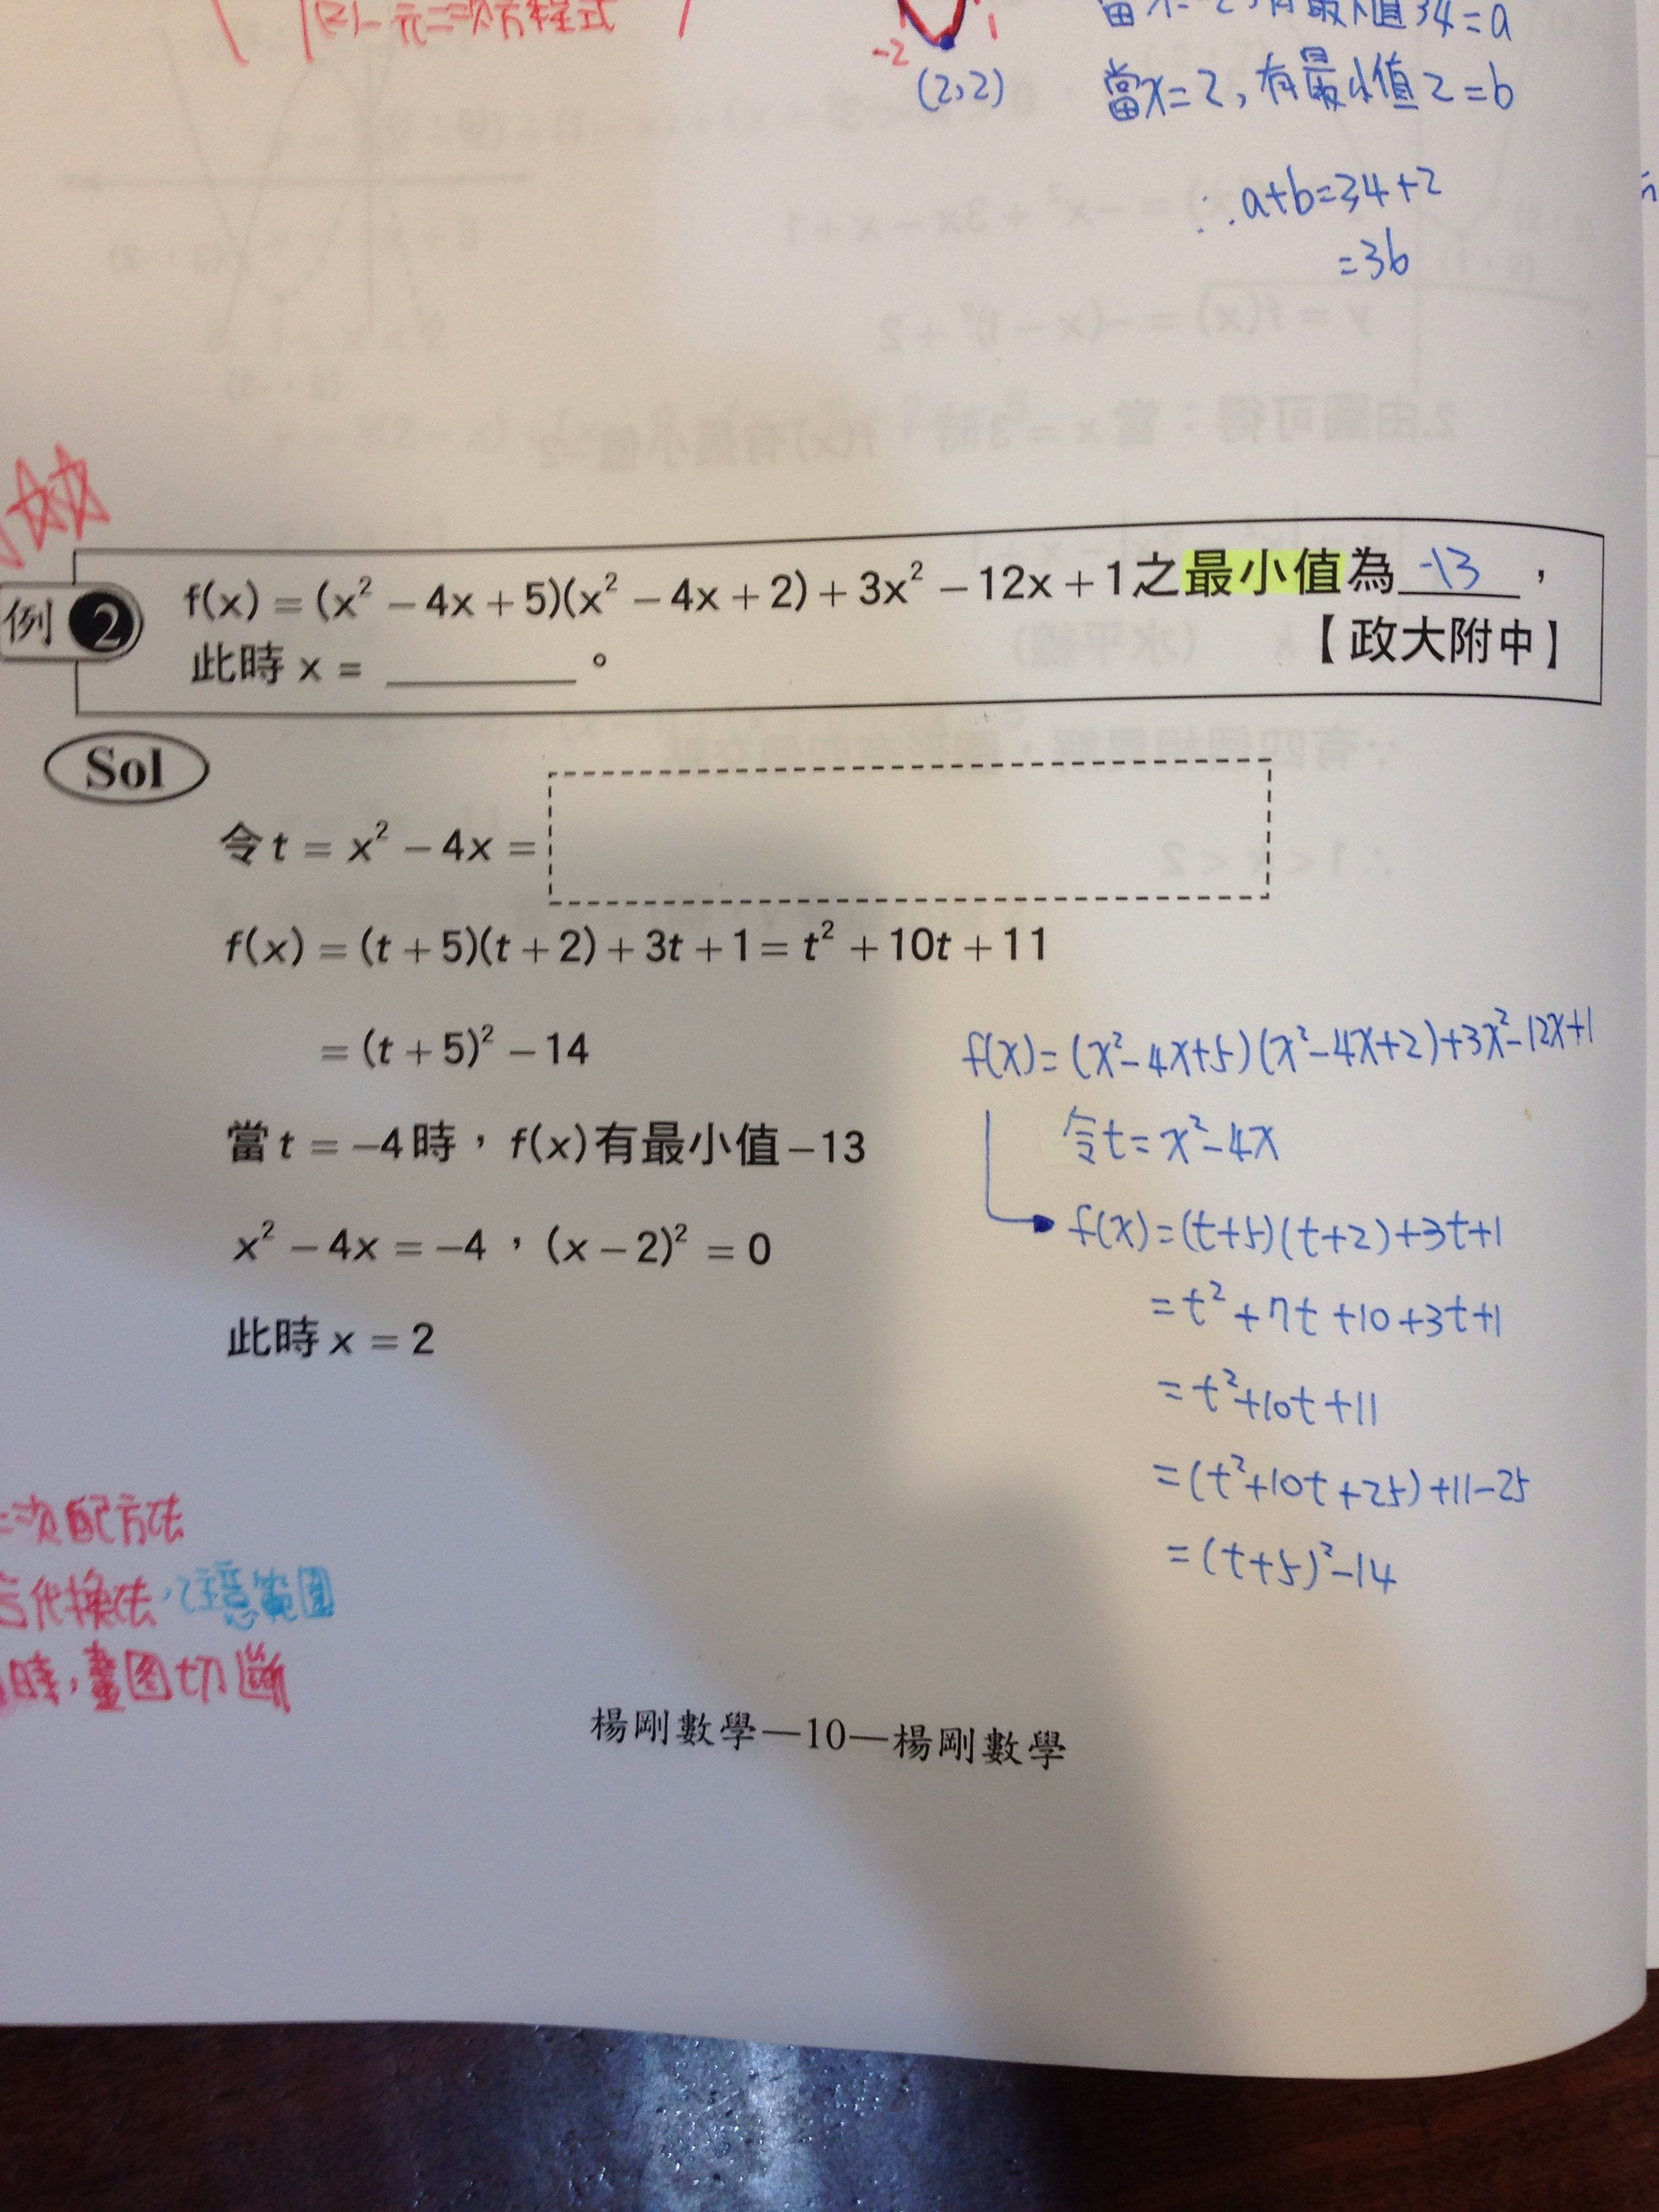 (2)一元二次方程式
-2
1
(2,2)
34=a
當x=2,有最小值2=b
∴a+b=34+2
=36
例 2
f(x) = (x² − 4x + 5)(x² − 4x + 2) + 3x² − 12x + 1之最小值為 -13 ,
此時 x = ________ 。 【政大附中】
Sol
令 t = x² − 4x =
f(x) = (t + 5)(t + 2) + 3t + 1 = t² + 10t + 11
= (t + 5)² − 14
當 t = −4 時,f(x)有最小值−13
x² − 4x = −4,(x − 2)² = 0
此時 x = 2
f(x)=(x²-4x+5)(x²-4x+2)+3x²-12x+1
令t=x²-4x
f(x)=(t+5)(t+2)+3t+1
=t²+7t+10+3t+1
=t²+10t+11
=(t²+10t+25)+11-25
=(t+5)²-14
二次配方法
代換法,注意範圍
時,畫图切斷
楊剛數學—10—楊剛數學